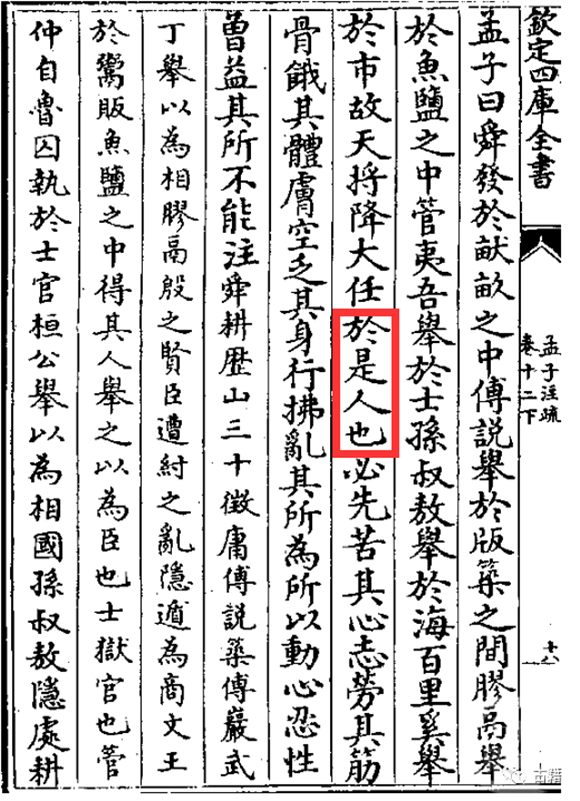 欽定四庫全書
孟子注疏
卷十二下
十八
孟子曰舜發於畎畝之中傅說舉於版築之間膠鬲舉
於魚鹽之中管夷吾舉於士孫叔敖舉於海百里奚舉
於市故天將降大任於是人也必先苦其心志勞其筋
骨餓其體膚空乏其身行拂亂其所為所以動心忍性
曽益其所不能注舜耕歴山三十徴庸傅說築傅巖武
丁舉以為相膠鬲殷之賢臣遭紂之亂隱遁為商文王
於鬻販魚鹽之中得其人舉之以為臣也士獄官也管
仲自魯囚執於士官桓公舉以為相國孫叔敖隱處耕
古籍